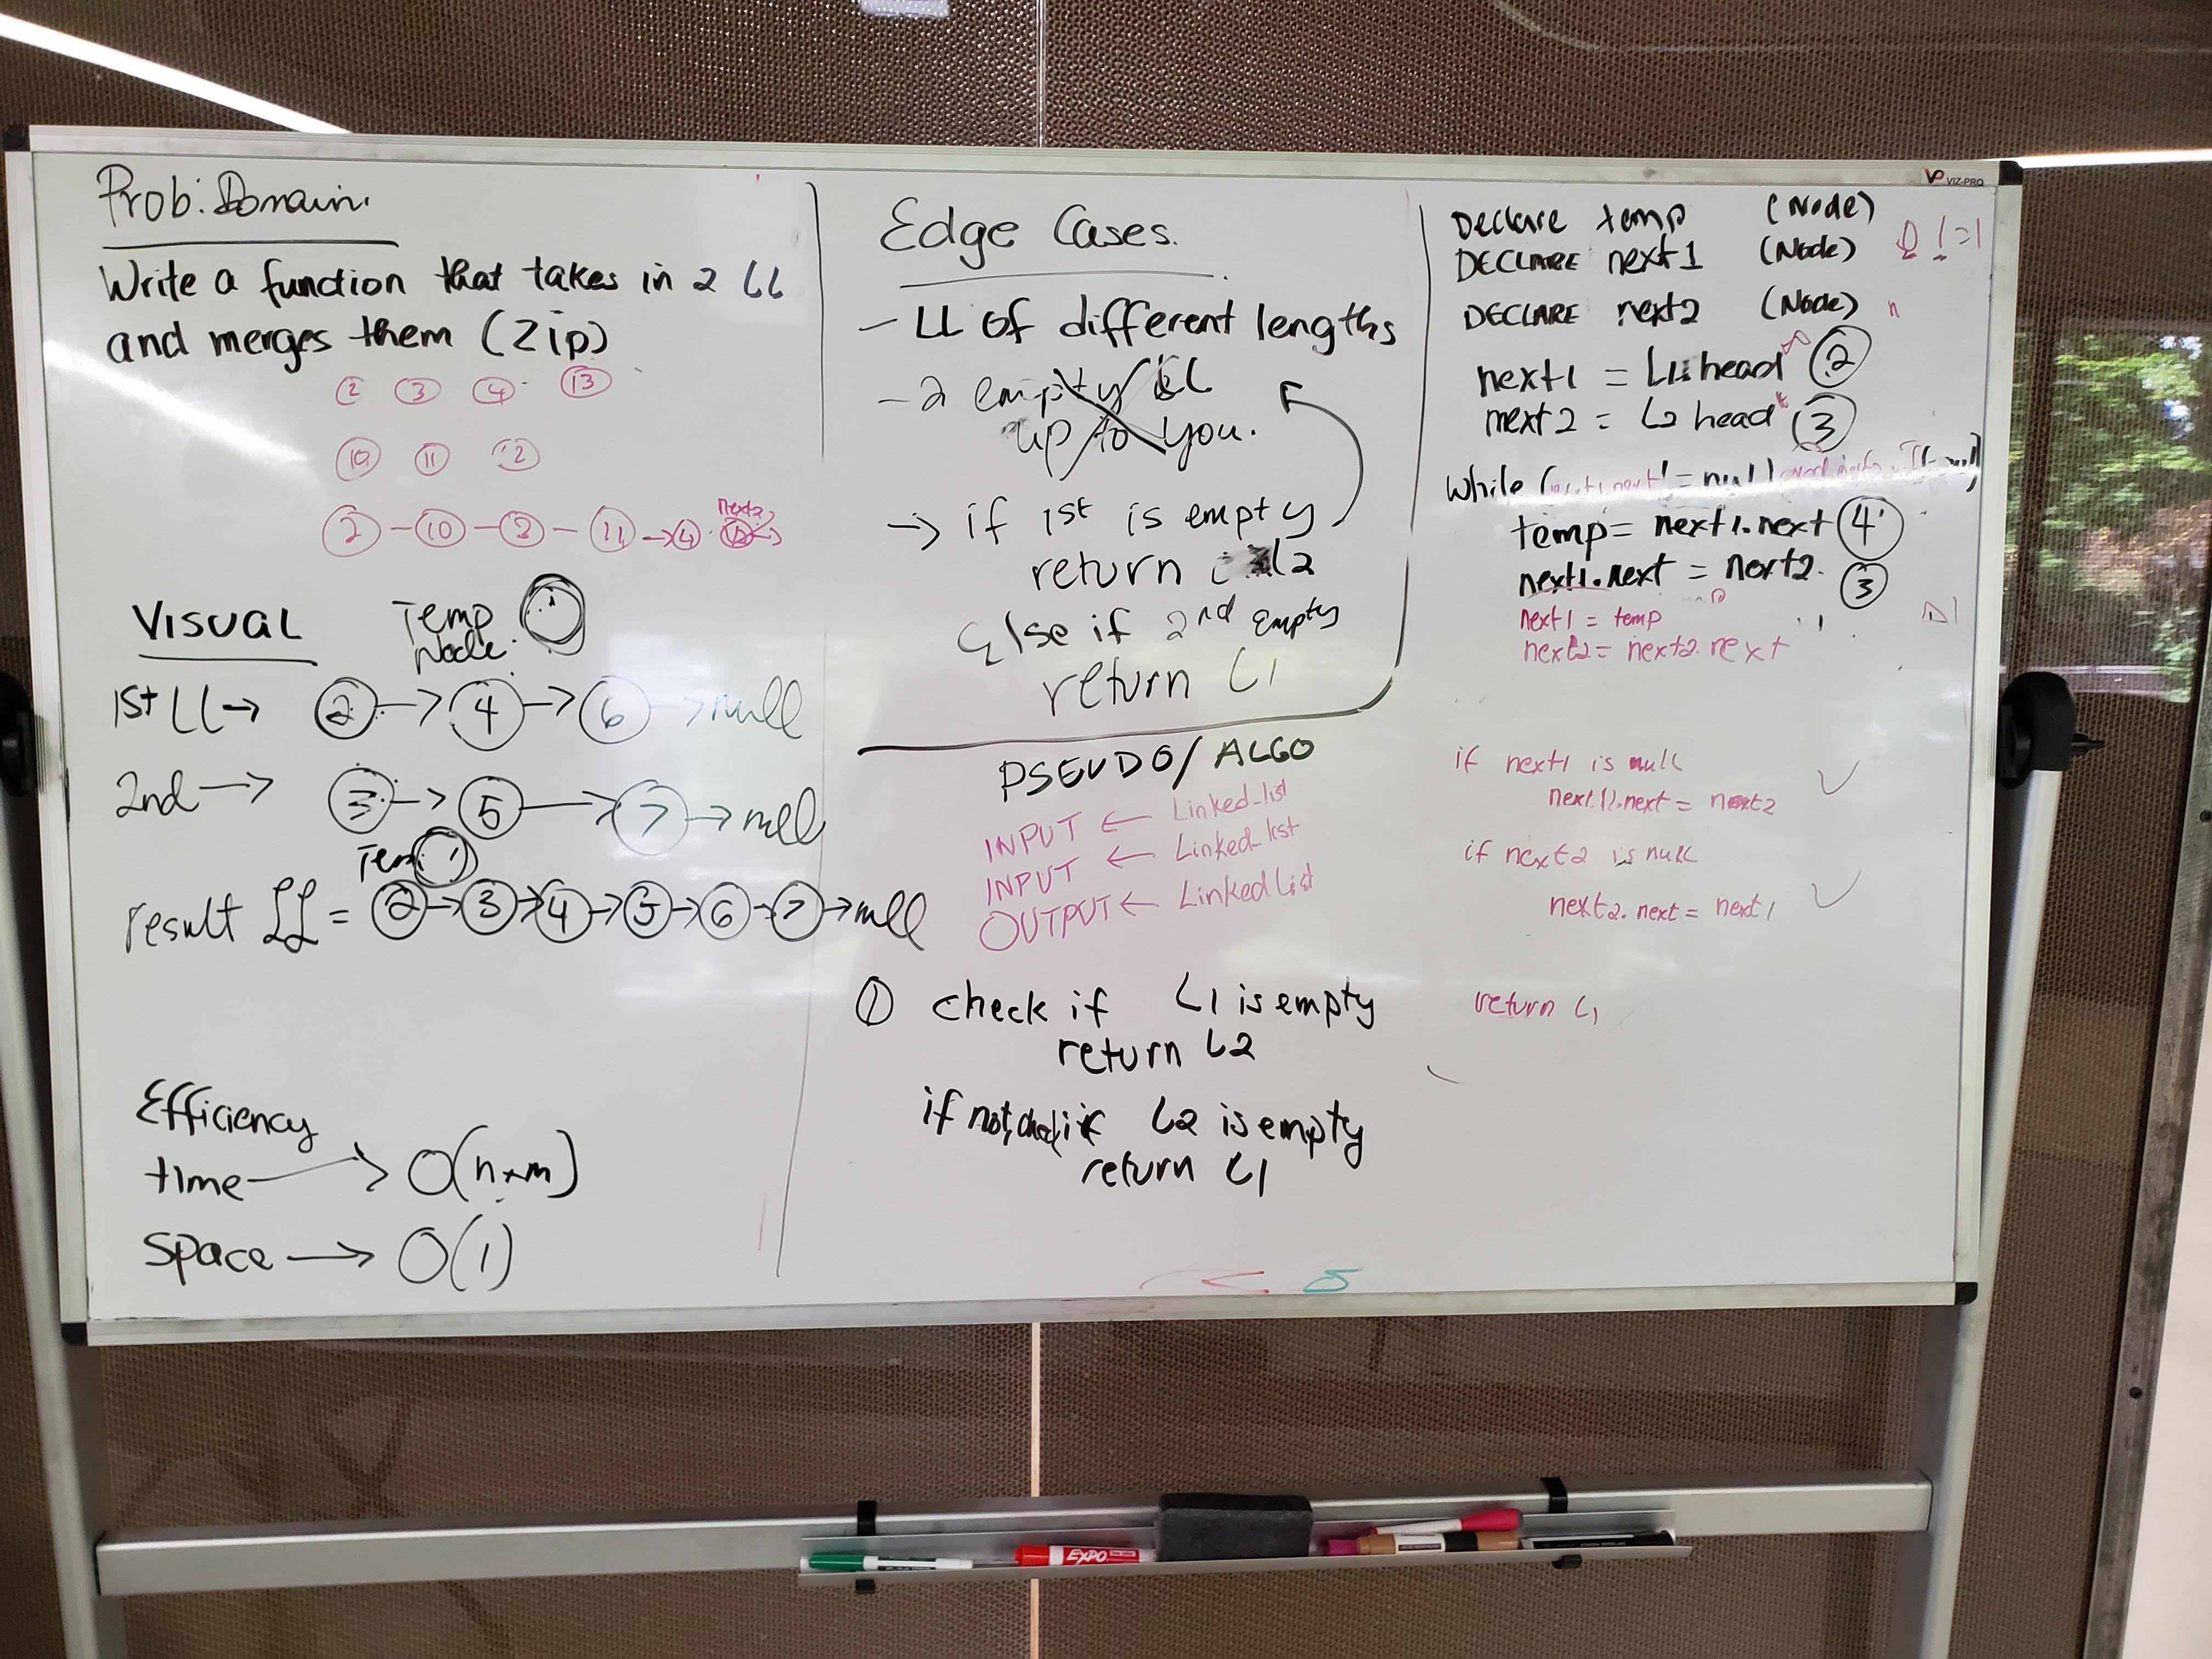 Prob. Domain.
Write a function that takes in 2 LL
and merges them (Zip)
2 3 4 13
10 11 12
next2
2 - 10 - 3 - 11 → 4
VISUAL Temp Node.
1st LL → 2 → 4 → 6 → null
2nd → 3 → 5 → 7 → null
Tem
result LL = 2 → 3 → 4 → 5 → 6 → 7 → null
Efficiency
time → O(n+m)
space → O(1)
Edge Cases.
- LL of different lengths
- 2 empty LL
up to you.
→ if 1st is empty
return L2
Else if 2nd empty
return L1
PSEUDO/ALGO
INPUT ← Linked_list
INPUT ← Linked_list
OUTPUT ← Linked List
① check if L1 is empty
return L2
if not, check if L2 is empty
return L1
5
VIZ-PRO
Declare temp (Node)
!=1
DECLARE next1 (Node)
DECLARE next2 (Node) n
next1 = L1.head 2
next2 = L2 head 3
While ( != null)
temp = next1.next 4
next1.next = next2. 3
next1 = temp
next2 = next2.next
if next1 is null
next1.next = next2
if next2 is null
next2.next = next1
return L1
EXPO